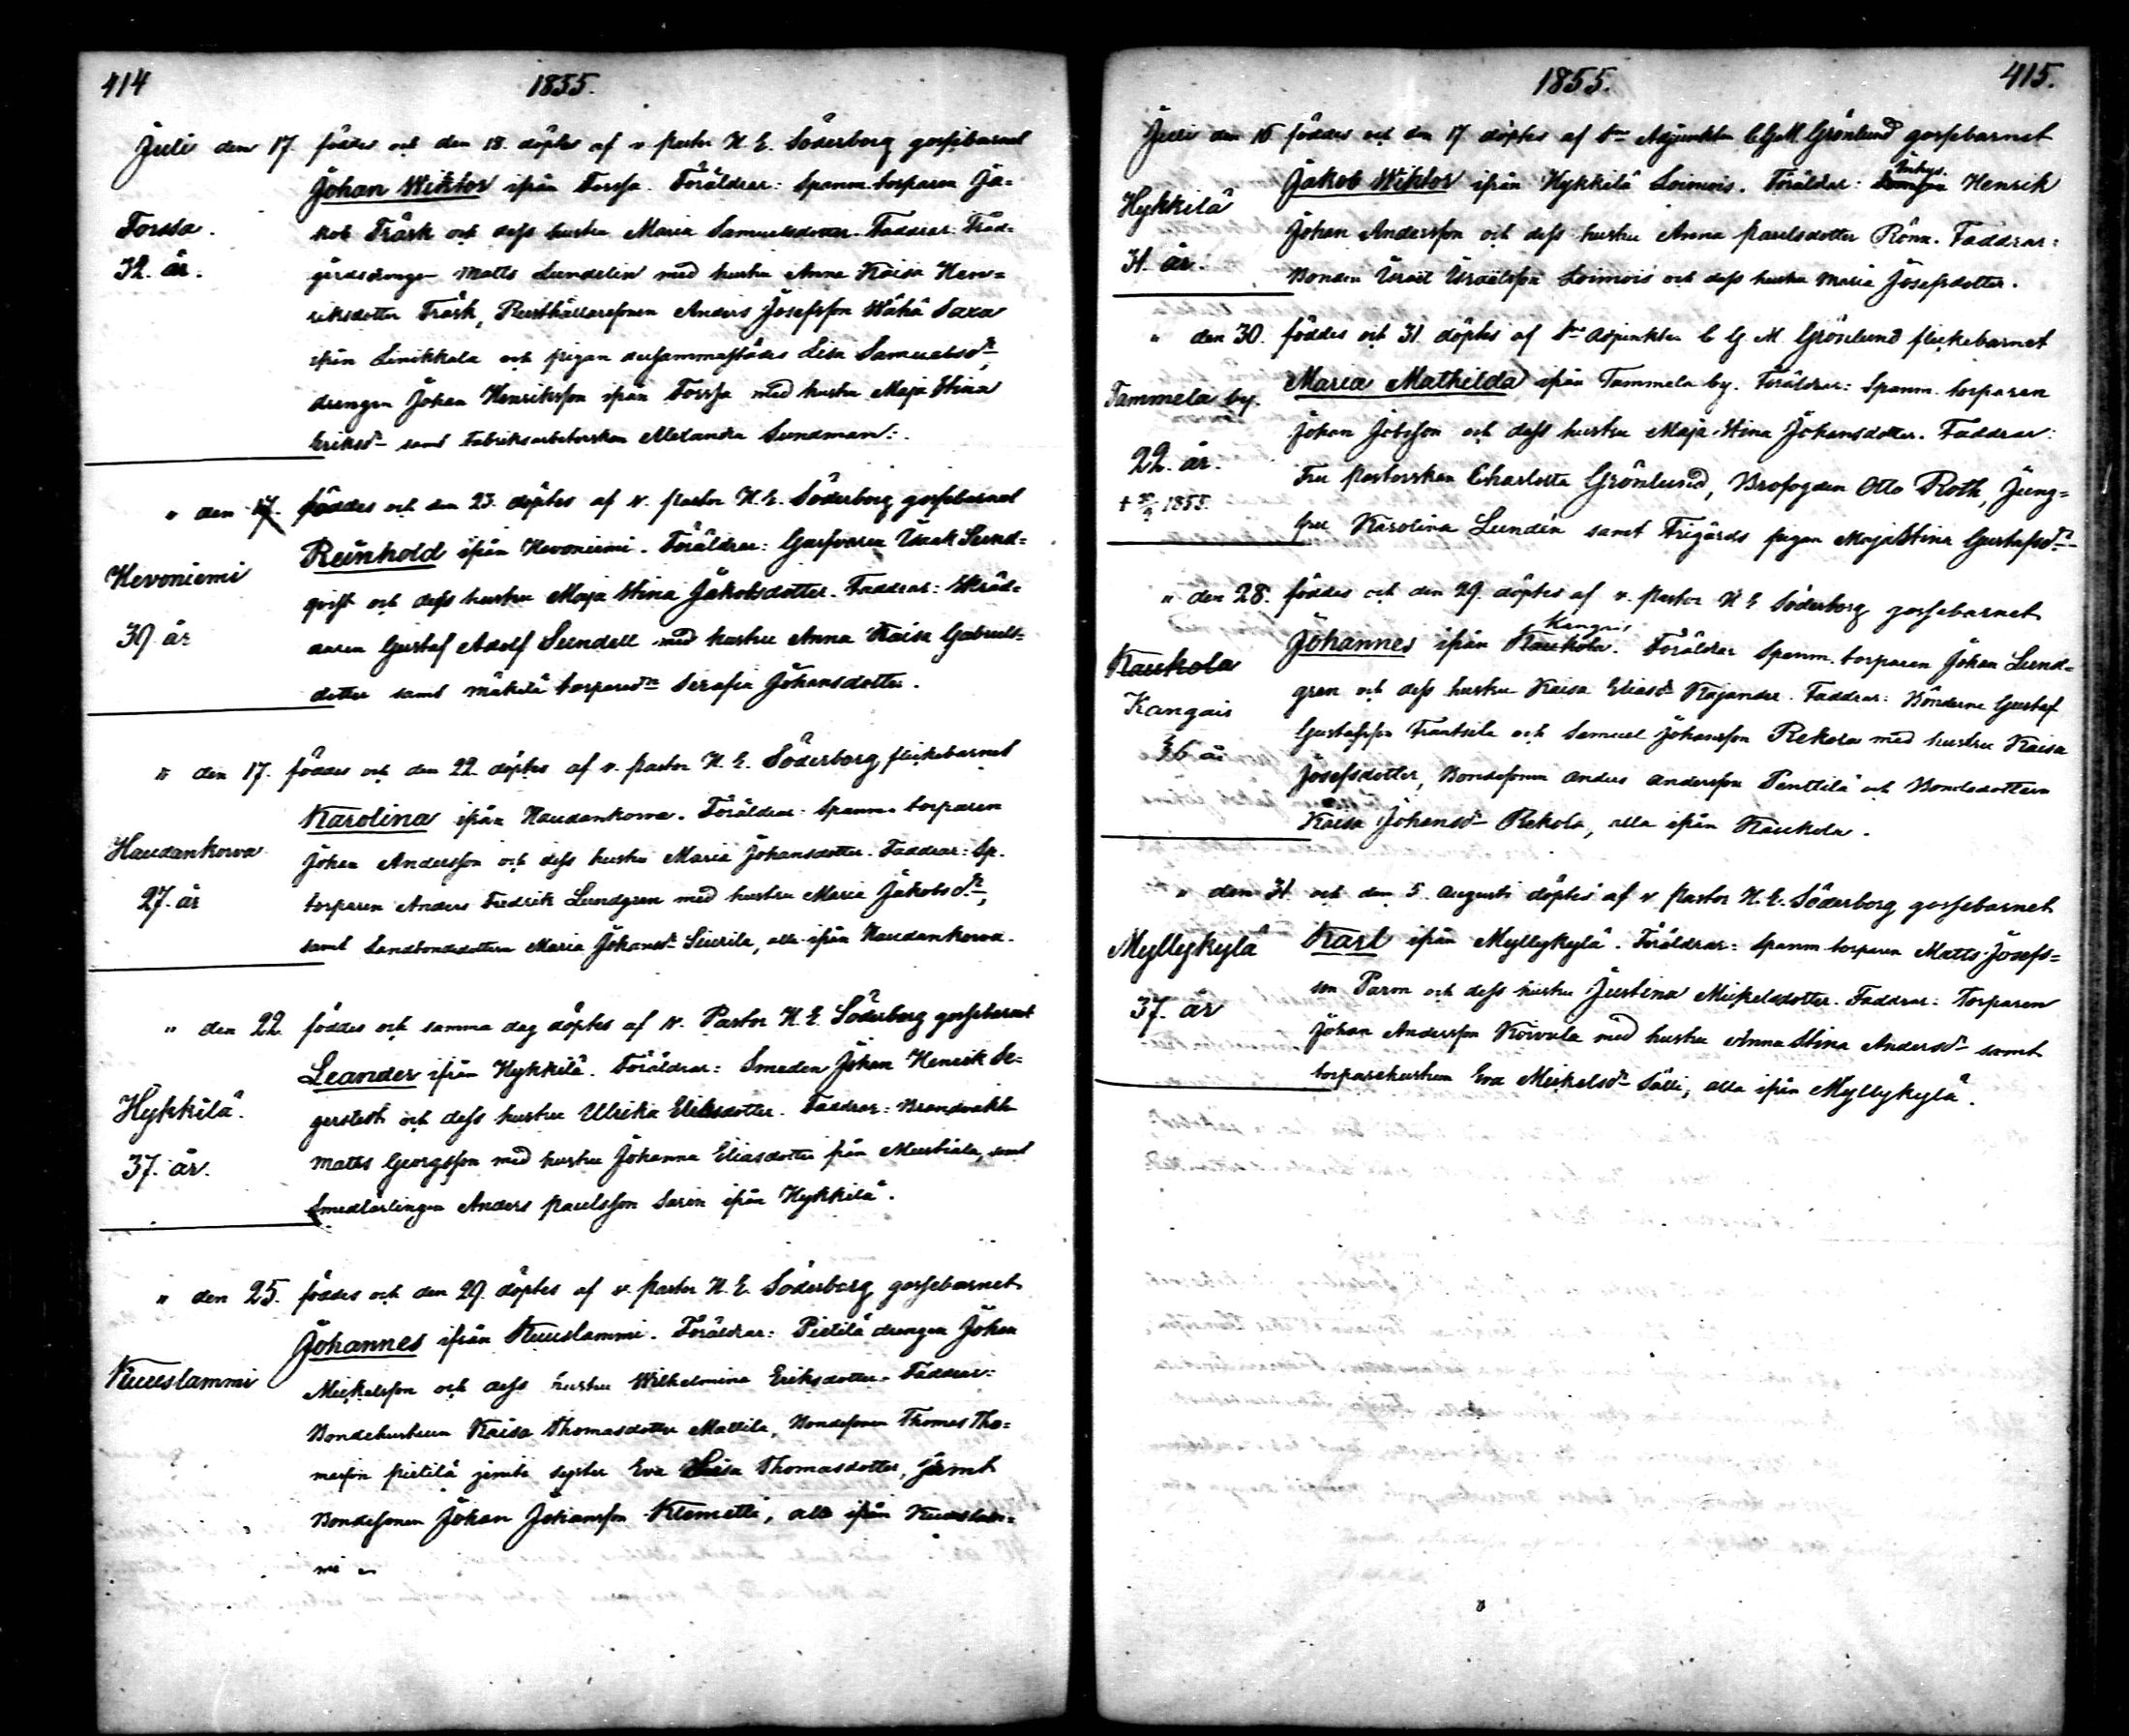 414 1855.
Juli den 17. föddes och den 18. döptes af v. Pastor H. E. Söderborg gossebarnet
Johan Wiktor ifrån Forssa. Föräldrar: Spanm. torparen Ja=
Forssa. kob Träsk och dess hustru Maria Samuelsdotter. Faddrar: Träd=
32. år. gårdsdrengen Matts Lundelin med hustru Anna Kaisa Hen=
riksdotter Träsk, Rusthållaresonen Anders Josefsson Wähä Saxa
ifrån Linikkala och pigan dersammastädes Lisa Samuelsdr,
drengen Johan Henriksson ifrån Forssa med hustru Maja Stina
Eriksdr samt Fabriksarbeterskan Alexandra Sundman.
" den 17. föddes och den 23. döptes af v. Pastor H. E. Söderborg gossebarnet
Reinhold ifrån Hevoniemi. Föräldrar: Garfvaren Isaak Sund=
Hevoniemi qvist och dess hustru Maja Stina Jakobsdotter. Faddrar: Skräd=
39 år aren Gustaf Adolf Sundell med hustru Anna Kaisa Gabriels=
dotter samt Mäkilä torparedr Serafia Johansdotter.
" den 17. föddes och den 22. döptes af v. Pastor H. E. Söderborg flickebarnet
Karolina ifrån Haudankorva. Föräldrar: Spanm. torparen
Haudankorva Johan Andersson och dess hustru Maria Johansdotter. Faddrar: Sp.
27. år torparen Anders Fredrik Lundgren med hustru Maria Jakobsdr,
samt Landbondedottern Maria Johansdr Siurila, alla ifrån Haudankorva.
" den 22. föddes och samma dag döptes af v. Pastor H. E. Söderborg gossebarnet
Leander ifrån Hykkilä. Föräldrar: Smeden Johan Henrik Se=
Hykkilä. gerstedt och dess hustru Ulrika Eliasdotter. Faddrar: Brandvakt
37. år. Matts Georgsson med hustru Johanna Eliasdotter från Mustiala, samt
Smedlärlingen Anders Paulsson Sarin ifrån Hykkilä.
" den 25. föddes och den 29. döptes af v. Pastor H. E. Söderborg gossebarnet
Johannes ifrån Kuuslammi. Föräldrar: Pietilä drengen Johan
Kuuslammi Mickelsson och dess hustru Wilhelmina Eriksdotter. Faddrar:
Bondehustrun Kaisa Thomasdotter Mattila, Bondesonen Thomas Tho=
masson Pietilä jemte syster Eva Lisa Thomasdotter, samt
Bondesonen Johan Johansson Klemetti, alla ifrån Kuuslam=
mi.
1855. 415.
Juli den 16 föddes och den 17 döptes af Adjunkten C G M Grönlund gossebarnet
Jakob Wiktor ifrån Hykkilä Loimois. Föräldrar: Inhys. Henrik
Hykkilä Johan Andersson och dess hustru Anna Paulsdotter Rönn. Faddrar:
31. år. Bonden Israel Israelsson Loimois och dess hustru Maria Josefsdotter.
" den 30. föddes och 31 döptes af Adjunkten C G M Grönlund flickebarnet
Maria Mathilda ifrån Tammela by. Föräldrar: Spanm. torparen
Tammela by. Johan Jobsson och dess hustru Maja Stina Johansdotter. Faddrar:
22. år. Fru Pastorskan Charlotta Grönlund, Brofogden Otto Roth, Jung=
1855. fru Karolina Lundén samt Frigårds pigan Maja Stina Gustafsdr
" den 28. föddes och den 29. döptes af v. Pastor H E Söderborg gossebarnet
Johannes ifrån Kaukola. Kangais Föräldrar Spanm. torparen Johan Lund=
Kaukola gren och dess hustru Kaisa Eliasdr Kajander. Faddrar: Bönderne Gustaf
Kangais Gustafsson Frantsila och Samuel Johansson Rekola med hustru Kaisa
36 år Josefsdotter, Bondesonen Anders Andersson Penttilä och Bondedottern
Kaisa Johansdr Rekola, alla ifrån Kaukola.
" den 31. och den 5. Augusti döptes af v Pastor H. E. Söderborg gossebarnet
Myllykylä Karl ifrån Myllykylä. Föräldrar: Spanm torparen Matts Josefs=
37. år son Parm och dess hustru Justina Mickelsdotter. Faddrar: Torparen
Johan Andersson Koivula med hustru Anna Stina Andersdr samt
torparehustrun Eva Mickelsdr Sälli, alla ifrån Myllykylä.